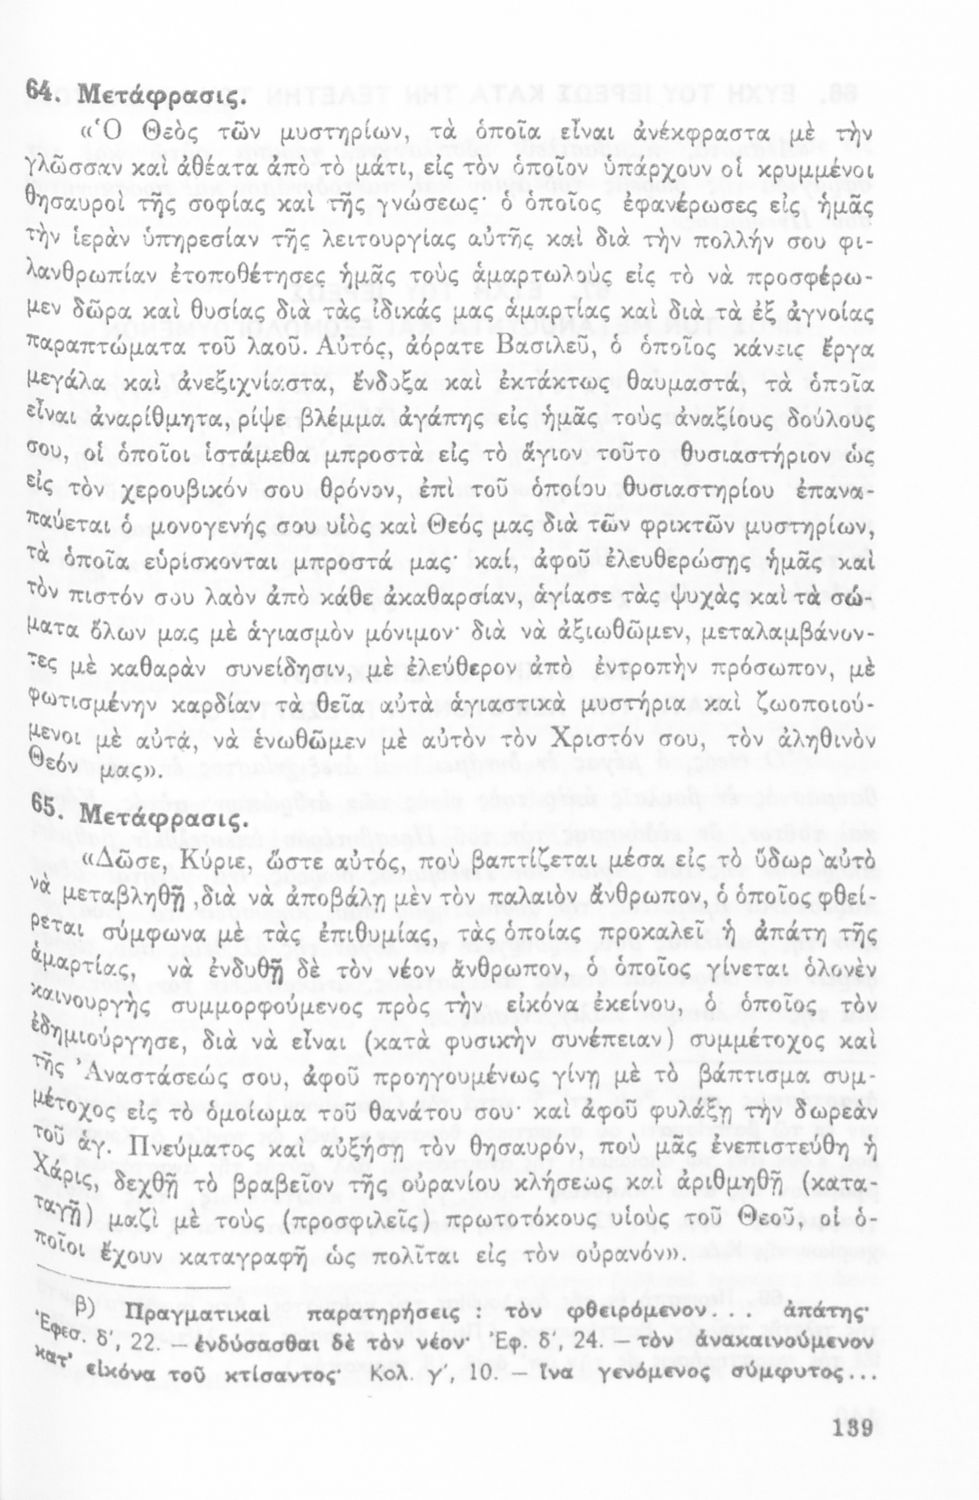 64. Μετάφρασις.
«Ὁ Θεὸς τῶν μυστηρίων, τὰ ὁποῖα εἶναι ἀνέκφραστα μὲ τὴν
γλῶσσαν καὶ ἀθέατα ἀπὸ τὸ μάτι, εἰς τὸν ὁποῖον ὑπάρχουν οἱ κρυμμένοι
θησαυροὶ τῆς σοφίας καὶ τῆς γνώσεως· ὁ ὁποῖος ἐφανέρωσες εἰς ἡμᾶς
τὴν ἱερὰν ὑπηρεσίαν τῆς λειτουργίας αὐτῆς καὶ διὰ τὴν πολλήν σου φι-
λανθρωπίαν ἐτοποθέτησες ἡμᾶς τοὺς ἁμαρτωλοὺς εἰς τὸ νὰ προσφέρω-
μεν δῶρα καὶ θυσίας διὰ τὰς ἰδικάς μας ἁμαρτίας καὶ διὰ τὰ ἐξ ἀγνοίας
παραπτώματα τοῦ λαοῦ. Αὐτός, ἀόρατε Βασιλεῦ, ὁ ὁποῖος κάνεις ἔργα
μεγάλα καὶ ἀνεξιχνίαστα, ἔνδοξα καὶ ἐκτάκτως θαυμαστά, τὰ ὁποῖα
εἶναι ἀναρίθμητα, ρίψε βλέμμα ἀγάπης εἰς ἡμᾶς τοὺς ἀναξίους δούλους
σου, οἱ ὁποῖοι ἱστάμεθα μπροστὰ εἰς τὸ ἅγιον τοῦτο θυσιαστήριον ὡς
εἰς τὸν χερουβικόν σου θρόνον, ἐπὶ τοῦ ὁποίου θυσιαστηρίου ἐπανα-
παύεται ὁ μονογενής σου υἱὸς καὶ Θεός μας διὰ τῶν φρικτῶν μυστηρίων,
τὰ ὁποῖα εὑρίσκονται μπροστά μας· καί, ἀφοῦ ἐλευθερώσῃς ἡμᾶς καὶ
τὸν πιστόν σου λαὸν ἀπὸ κάθε ἀκαθαρσίαν, ἁγίασε τὰς ψυχὰς καὶ τὰ σώ-
ματα ὅλων μας μὲ ἁγιασμὸν μόνιμον· διὰ νὰ ἀξιωθῶμεν, μεταλαμβάνον-
τες μὲ καθαρὰν συνείδησιν, μὲ ἐλεύθερον ἀπὸ ἐντροπὴν πρόσωπον, μὲ
φωτισμένην καρδίαν τὰ θεῖα αὐτὰ ἁγιαστικὰ μυστήρια καὶ ζωοποιού-
μενοι μὲ αὐτά, νὰ ἑνωθῶμεν μὲ αὐτὸν τὸν Χριστόν σου, τὸν ἀληθινὸν
Θεόν μας».
65. Μετάφρασις.
«Δῶσε, Κύριε, ὥστε αὐτός, ποὺ βαπτίζεται μέσα εἰς τὸ ὕδωρ αὐτὸ
νὰ μεταβληθῇ ,διὰ νὰ ἀποβάλῃ μὲν τὸν παλαιὸν ἄνθρωπον, ὁ ὁποῖος φθεί-
ρεται σύμφωνα μὲ τὰς ἐπιθυμίας, τὰς ὁποίας προκαλεῖ ἡ ἀπάτη τῆς
ἁμαρτίας, νὰ ἐνδυθῇ δὲ τὸν νέον ἄνθρωπον, ὁ ὁποῖος γίνεται ὁλονὲν
καινουργὴς συμμορφούμενος πρὸς τὴν εἰκόνα ἐκείνου, ὁ ὁποῖος τὸν
ἐδημιούργησε, διὰ νὰ εἶναι (κατὰ φυσικὴν συνέπειαν) συμμέτοχος καὶ
τῆς Ἀναστάσεώς σου, ἀφοῦ προηγουμένως γίνῃ μὲ τὸ βάπτισμα συμ-
μέτοχος εἰς τὸ ὁμοίωμα τοῦ θανάτου σου· καὶ ἀφοῦ φυλάξῃ τὴν δωρεὰν
τοῦ ἁγ. Πνεύματος καὶ αὐξήσῃ τὸν θησαυρόν, ποὺ μᾶς ἐνεπιστεύθη ἡ
Χάρις, δεχθῇ τὸ βραβεῖον τῆς οὐρανίου κλήσεως καὶ ἀριθμηθῇ (κατα-
ταγῇ) μαζὶ μὲ τοὺς (προσφιλεῖς) πρωτοτόκους υἱοὺς τοῦ Θεοῦ, οἱ ὁ-
ποῖοι ἔχουν καταγραφῆ ὡς πολῖται εἰς τὸν οὐρανόν».
β) Πραγματικαὶ παρατηρήσεις : τὸν φθειρόμενον.... ἀπάτης·
Ἐφεσ. δ', 22. — ἐνδύσασθαι δὲ τὸν νέον· Ἐφ. δ', 24. — τὸν ἀνακαινούμενον
κατ' εἰκόνα τοῦ κτίσαντος· Κολ. γ', 10. — ἵνα γενόμενος σύμφυτος...
139